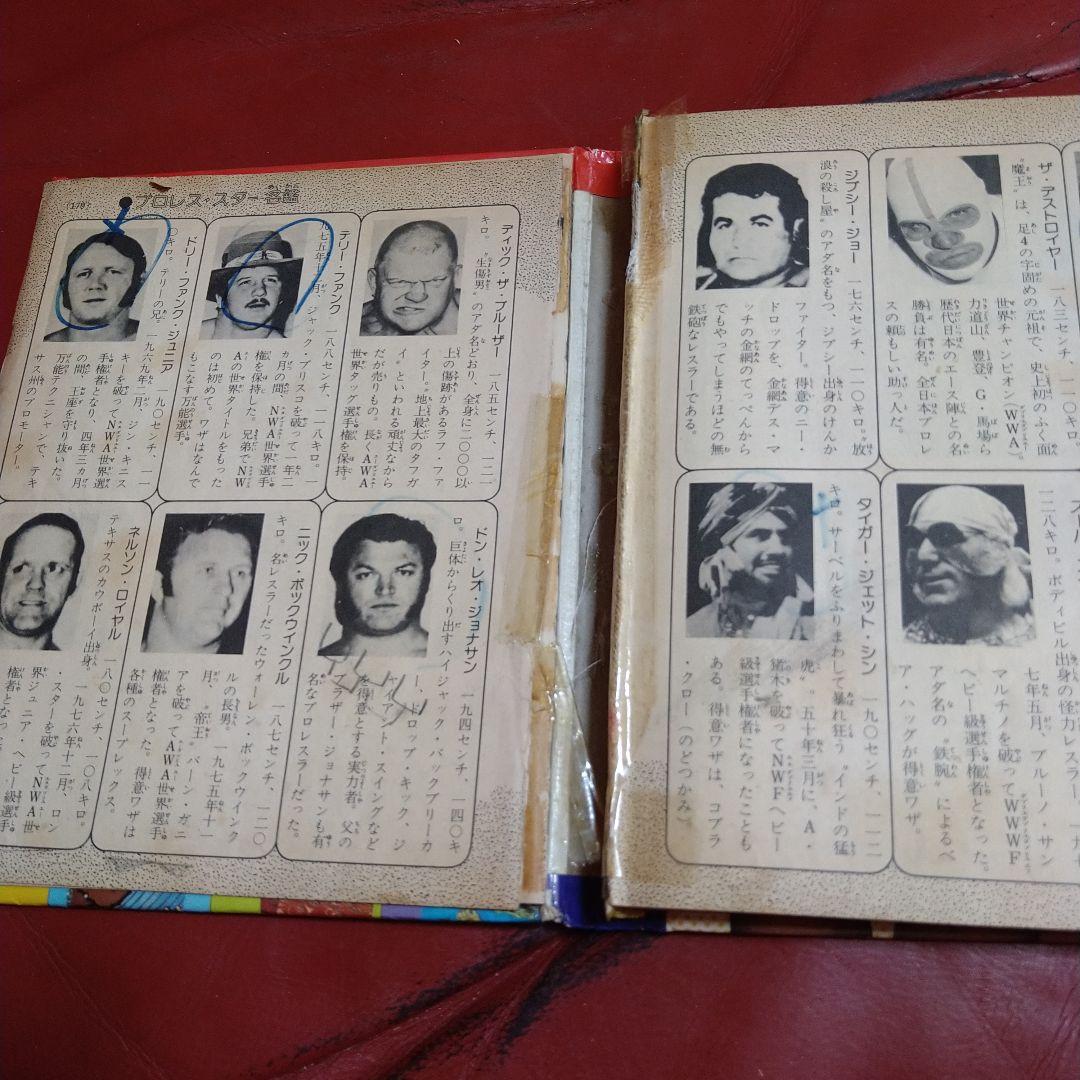 ザ・デストロイヤー 一八三センチ、一一〇キロ。
“魔王”は、足4の字固めの元祖で、史上初のふく面
世界チャンピオン（WWA）。
力道山、豊登、G・馬場ら
歴代日本のエース陣との名
勝負は有名。全日本プロレ
スの頼もしい助っ人だ。
ジプシー・ジョー 一七六センチ、一一〇キロ。“放
浪の殺し屋”のアダ名をもつ、ジプシー出身のけんか
ファイター。得意のニー・
ドロップを、金網デス・マ
ッチの金網のてっぺんから
でもやってしまうほどの無
鉄砲なレスラーである。
一二八キロ。ボディビル出身の怪力レスラー
七年五月、ブルーノ・サン
マルチノを破ってWWWF
ヘビー級選手権者となった。
アダ名の“鉄腕”によるベ
ア・ハッグが得意ワザ。
タイガー・ジェット・シン 一九〇センチ、一一二
キロ。サーベルをふりまわして暴れ狂う“インドの猛
虎”。五十年三月に、A・
猪木を破ってNWFヘビー
級選手権者になったことも
ある。得意ワザは、コブラ
・クロー（のどつかみ）。
プロレス・スター名鑑
ディック・ザ・ブルーザー 一八五センチ、一二一
キロ。“生傷男”のアダ名どおり、全身に二〇〇〇以
上の傷跡があるラフ・ファ
イター。“地上最大のタフガ
イ”といわれる頑丈なから
だが売りもの。長くAWA
世界タッグ選手権を保持。
テリー・ファンク 一八八センチ、一一八キロ。一
九七五年十二月、ジャック・ブリスコを破って一年二
カ月の間、NWA世界選手
権を保持した。兄弟でNW
Aの世界タイトルをもった
のは初めて。ワザはなんで
もこなす万能選手。
ドリー・ファンク・ジュニア 一九〇センチ、一一
〇キロ。テリーの兄。一九六九年二月、ジン・キニス
キーを破ってNWA世界選
手権者となり、四年三カ月
の間、王座を守り抜いた。
万能テクニシャンで、テキ
サス州のプロモーター。
ドン・レオ・ジョナサン 一九四センチ、一四〇キ
ロ。巨体からくり出すハイジャック・バックブリーカ
ー、ドロップ・キック、ジ
ャイアント・スイングなど
を得意とする実力者。父の
ブラザー・ジョナサンも有
名なプロレスラーだった。
ニック・ボックウインクル 一八七センチ、一二〇
キロ。名レスラーだったウォーレン・ボックウインク
ルの長男。一九七五年十一
月、“帝王”バーン・ガニ
アを破ってAWA世界選手
権者となった。得意ワザは
各種のスープレックス。
ネルソン・ロイヤル 一八〇センチ、一〇八キロ。
テキサスのカウボーイ出身。一九七六年十二月、ロン
・スターを破ってNWA世
界ジュニア・ヘビー級選手
権者となっ